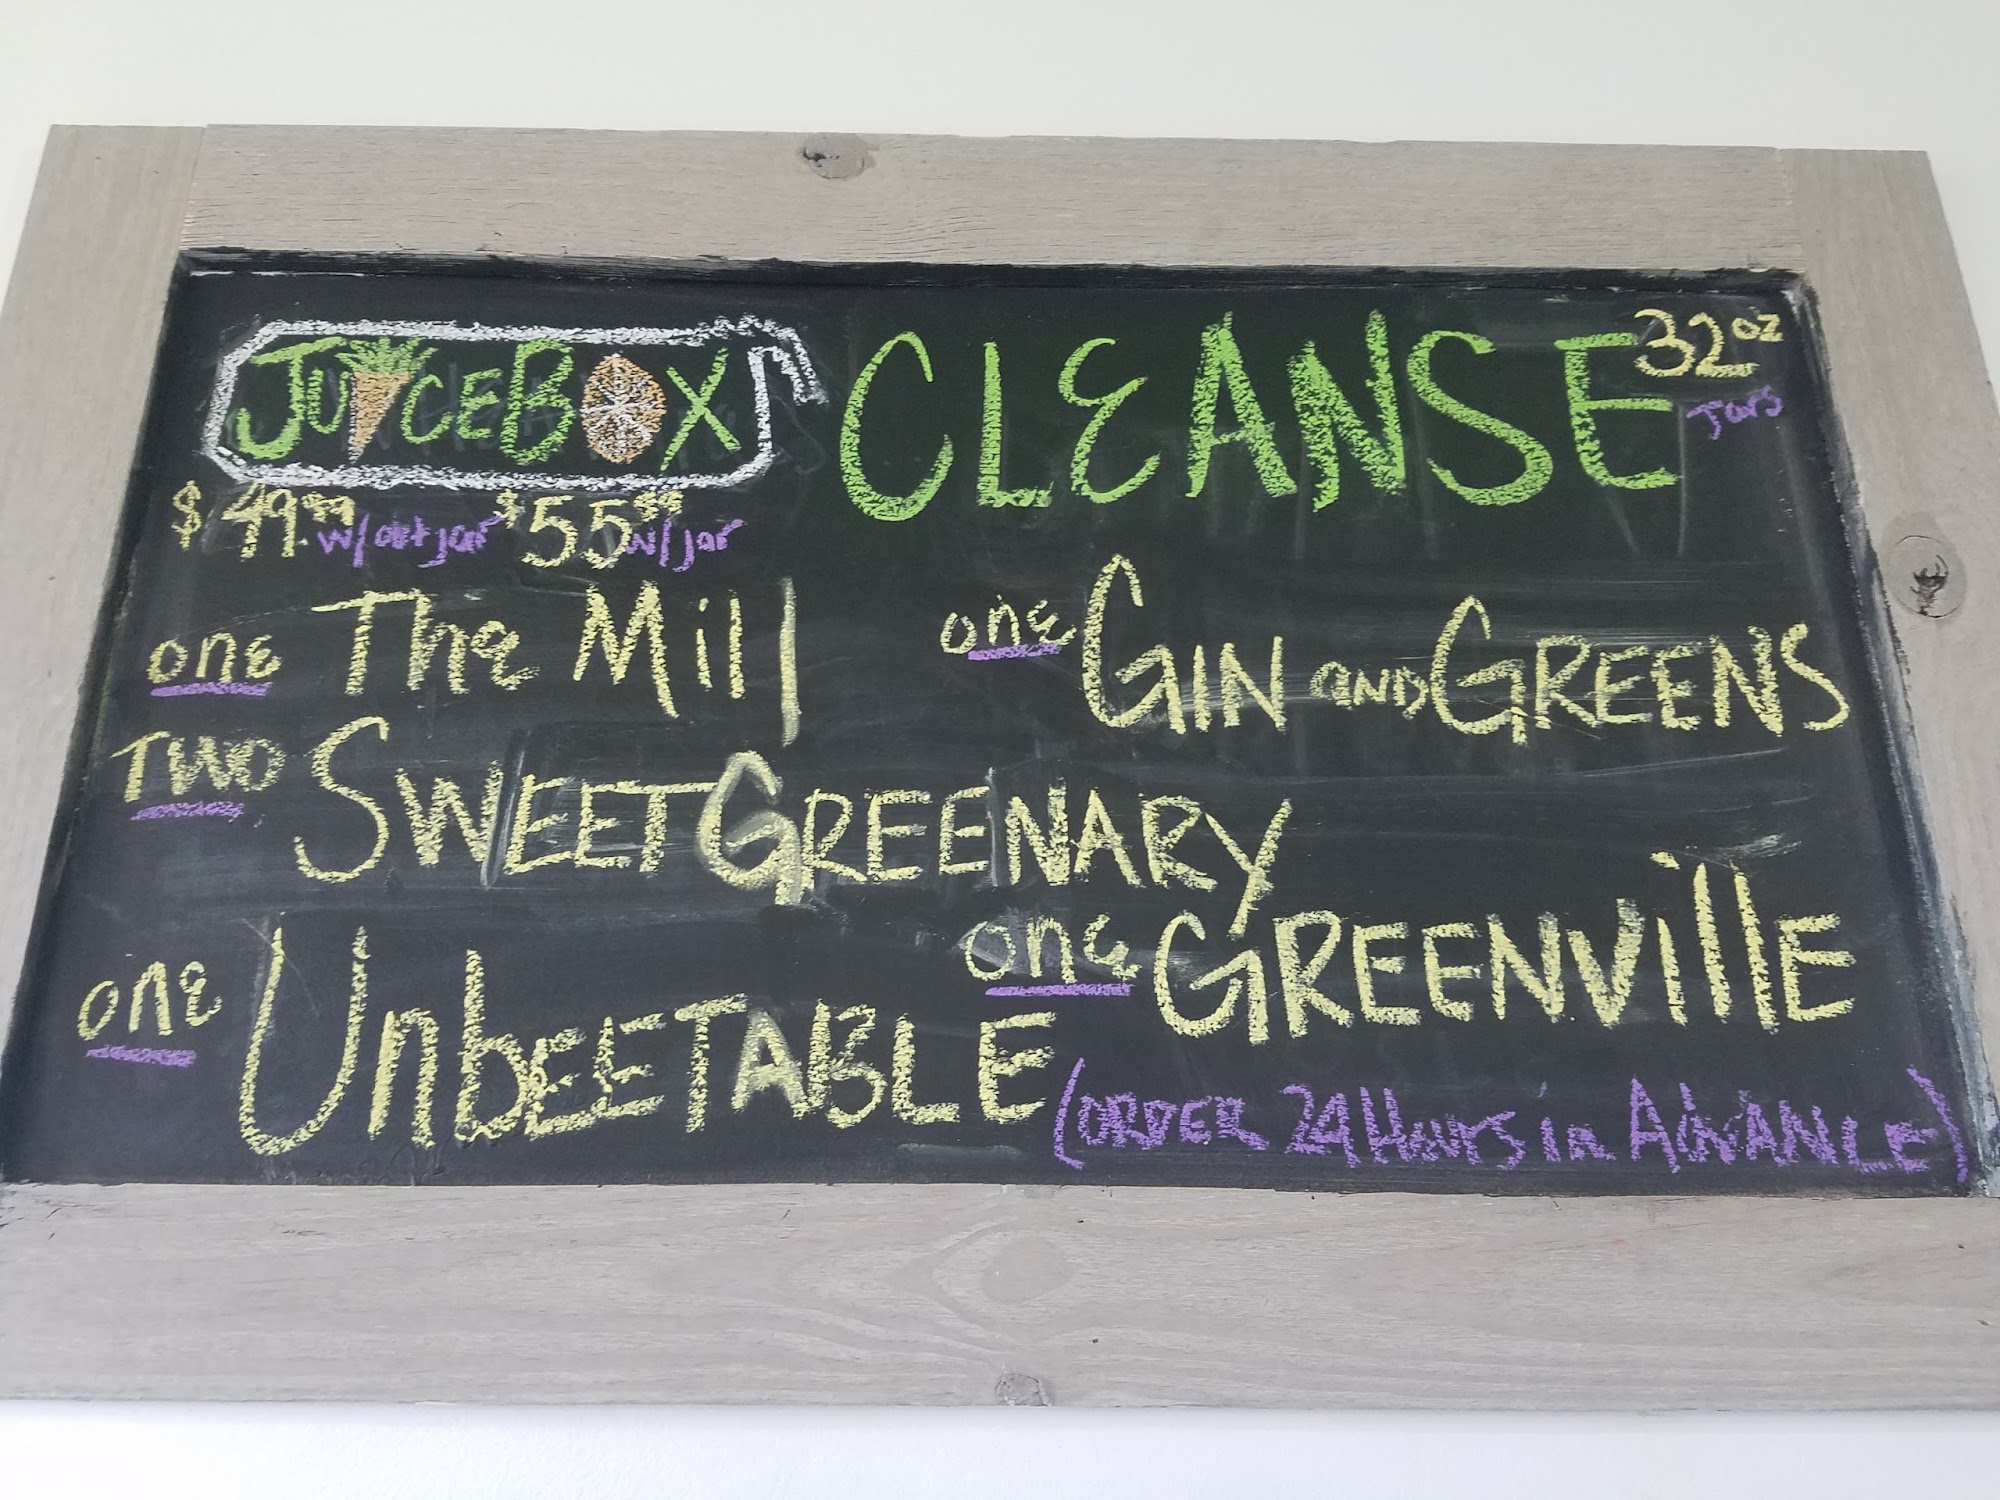 JUICEBOX CLEANSE 32oz Jars
$49.99 w/out jar $55.99 w/ jar
one The Mill one GIN AND GREENS
TWO SWEET GREENARY
one UnbEETABLE one GREENVillE
(ORDER 24 Hours in ADVANCE)